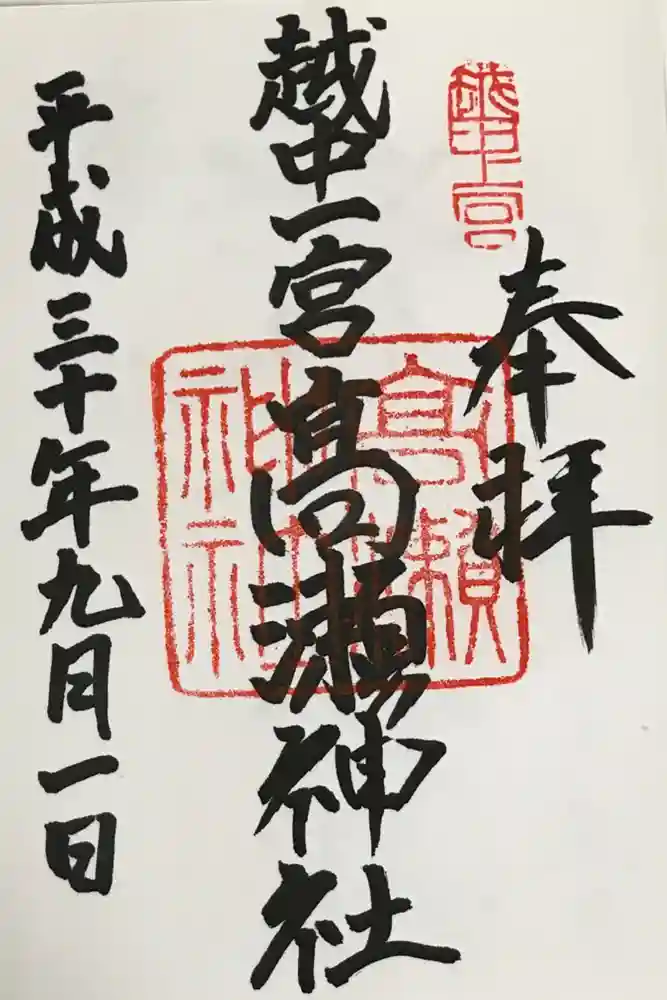 奉拝
越中一宮
越中一宮髙瀬神社
平成三十年九月一日